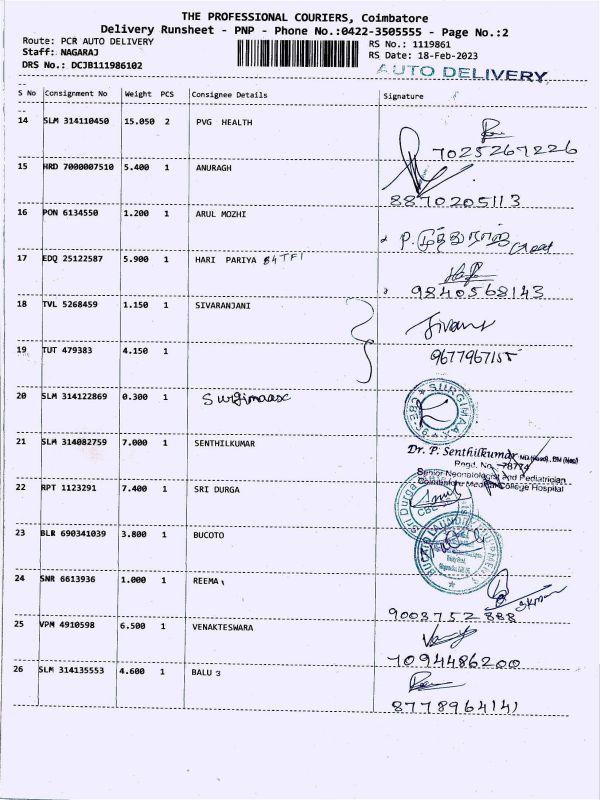 THE PROFESSIONAL COURIERS, Coimbatore
Delivery Runsheet - PNP - Phone No.:0422-3505555 - Page No.:2
Route: PCR AUTO DELIVERY RS No.: 1119861
Staff: NAGARAJ RS Date: 18-Feb-2023
DRS No.: DCJB111986102 AUTO DELIVERY
S No Consignment No Weight PCS Consignee Details Signature
14 SLM 314110450 15.050 2 PVG HEALTH
7025267226
15 HRD 7000007510 5.400 1 ANURAGH
8870205113
16 PON 6134550 1.200 1 ARUL MOZHI
P. முத்துராஜ்
17 EDQ 25122587 5.900 1 HARI PARIYA
9840568143
18 TVL 5268459 1.150 1 SIVARANJANI
19 TUT 479383 4.150 1
9677967155
20 SLM 314122869 0.300 1 Surgimaasx
SURGIMAX
CBE
21 SLM 314082759 7.000 1 SENTHILKUMAR
Dr. P. Senthilkumar
Regd. No. 78774
Senior Neonatologist and Pediatrician
Coimbatore Medical College Hospital
22 RPT 1123291 7.400 1 SRI DURGA
Sri Durga
23 BLR 690341039 3.800 1 BUCOTO
24 SNR 6613936 1.000 1 REEMA
9003752888
25 VPM 4910598 6.500 1 VENAKTESWARA
7094486200
26 SLM 314135553 4.600 1 BALU 3
8778964141